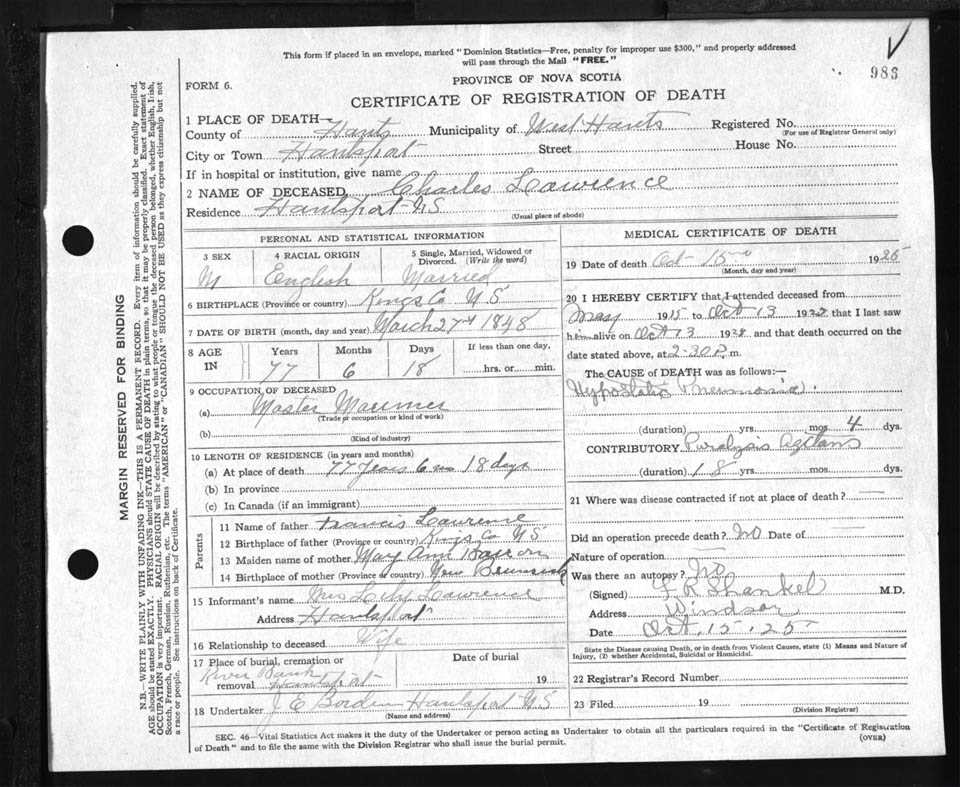 This form if placed in an envelope, marked "Dominion Statistics—Free, penalty for improper use $300," and properly addressed
will pass through the Mail "FREE."
983
PROVINCE OF NOVA SCOTIA
FORM 6.
CERTIFICATE OF REGISTRATION OF DEATH
1 PLACE OF DEATH—
County of Hants Municipality of West Hants Registered No.
(For use of Registrar General only)
City or Town Hantsport Street House No.
If in hospital or institution, give name
2 NAME OF DECEASED Charles Lawrence
Residence Hantsport N S
(Usual place of abode)
PERSONAL AND STATISTICAL INFORMATION
3 SEX 4 RACIAL ORIGIN 5 Single, Married, Widowed or
Divorced. (Write the word)
M English Married
6 BIRTHPLACE (Province or country) Kings Co N S
7 DATE OF BIRTH (month, day and year) March 27th 1848
8 AGE IN Years Months Days If less than one day,
77 6 18 hrs. or min.
9 OCCUPATION OF DECEASED
(a) Master Mariner
(Trade or occupation or kind of work)
(b)
(Kind of industry)
10 LENGTH OF RESIDENCE (in years and months)
(a) At place of death 77 years 6 mo 18 days
(b) In province
(c) In Canada (if an immigrant)
Parents
11 Name of father Francis Lawrence
12 Birthplace of father (Province or country) Kings Co N S
13 Maiden name of mother May Ann
14 Birthplace of mother (Province or country) New Brunswick
15 Informant's name Mrs Lawrence
Address Hantsport
16 Relationship to deceased Wife
17 Place of burial, cremation or Date of burial
River Bank
removal Hantsport 19
18 Undertaker J E Borden Hantsport N S
(Name and address)
MEDICAL CERTIFICATE OF DEATH
19 Date of death Oct 15 1925
(Month, day and year)
20 I HEREBY CERTIFY that I attended deceased from
May 1915 to Oct 13 19 that I last saw
him alive on Oct 13 19 and that death occurred on the
date stated above, at 2-30 P. m.
The CAUSE OF DEATH was as follows:—
Hypostatic Pneumonia.
(duration) yrs. mos. 4 dys.
CONTRIBUTORY Paralysis Agitans
(duration) 18 yrs. mos. dys.
21 Where was disease contracted if not at place of death? —
Did an operation precede death? No Date of —
Nature of operation —
Was there an autopsy? No
(Signed) F R Shankel M.D.
Address Windsor
Date Oct. 15. 25
State the Disease causing Death, or in death from Violent Causes, state (1) Means and Nature of
Injury, (2) whether Accidental, Suicidal or Homicidal.
22 Registrar's Record Number
23 Filed 19
(Division Registrar)
SEC. 46—Vital Statistics Act makes it the duty of the Undertaker or person acting as Undertaker to obtain all the particulars required in the "Certificate of Registration
of Death" and to file the same with the Division Registrar who shall issue the burial permit.
(OVER)
MARGIN RESERVED FOR BINDING
N.B.—WRITE PLAINLY WITH UNFADING INK—THIS IS A PERMANENT RECORD. Every item of information should be carefully supplied.
AGE should be stated EXACTLY. PHYSICIANS should STATE CAUSE OF DEATH in plain terms, so that it may be properly classified. Exact statement of
OCCUPATION is very important. RACIAL ORIGIN will be described by stating to what people or tongue the deceased person belonged, whether English, Irish,
Scotch, French, German, Russian, Ruthenian, etc. The terms "AMERICAN" or "CANADIAN" SHOULD NOT BE USED as they express citizenship but not
a race or people. See instructions on back of Certificate.